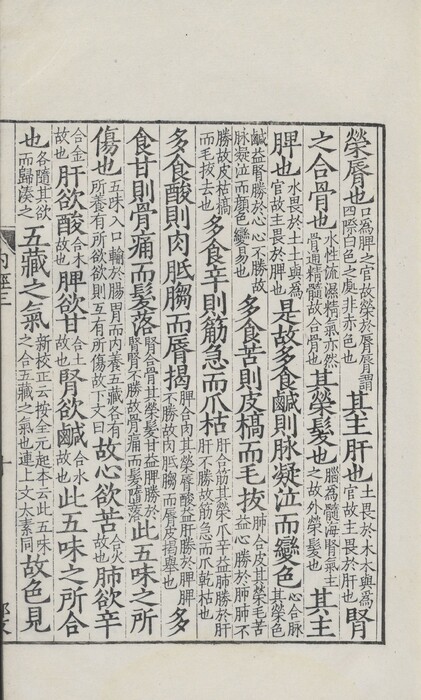 榮脣也口為脾之官故榮於脣脣謂四際白色之處非赤色也其主肝也土畏於木木與為官故主畏於肝也腎
之合骨也水性流濕精氣亦然骨通精髓故合骨也其榮髮也腦為髓海腎氣主之故外榮髮也其主
脾也水畏於土土與為官故主畏於脾也是故多食鹹則脉凝泣而變色心合脉其榮色
鹹益腎勝於心心不勝故脉凝泣而顏色變易也多食苦則皮槁而毛拔肺合皮其榮毛苦益心勝於肺肺不
勝故皮枯槁而毛拔去也多食辛則筋急而爪枯肝合筋其榮爪辛益肺勝於肝肝不勝故筋急而爪乾枯也
多食酸則肉胝䐢而脣揭脾合肉其榮脣酸益肝勝於脾脾不勝故肉胝䐢而脣皮揭舉也多
食甘則骨痛而髮落腎合骨其榮髮甘益脾勝於腎腎不勝故骨痛而髮墮落此五味之所
傷也五味入口輸於腸胃而內養五藏各有所養有所欲欲則互有所傷故下文曰故心欲苦合火故也肺欲辛
合金故也肝欲酸合木故也脾欲甘合土故也腎欲鹹合水故也此五味之所合
也各隨其欲而歸湊之五藏之氣新校正云按全元起本云此五味之合五藏之氣也連上文太素同故色見